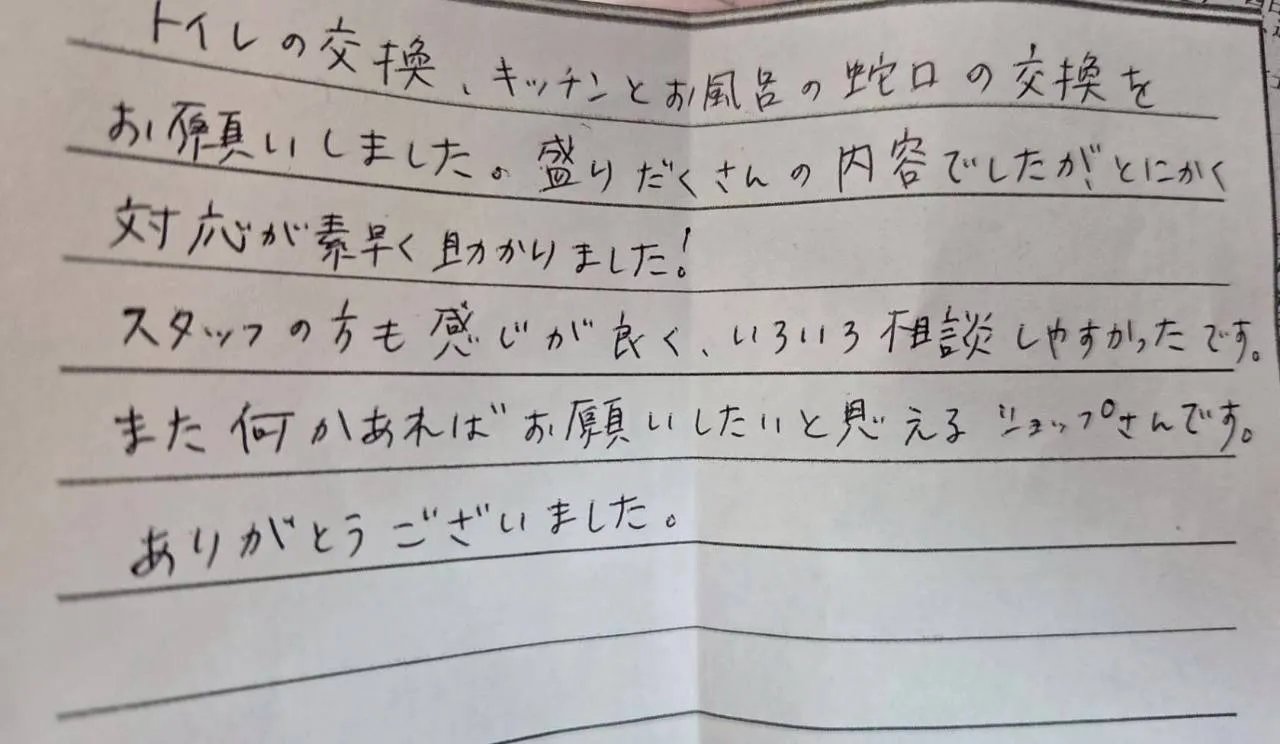 トイレの交換、キッチンとお風呂の蛇口の交換を
お願いしました。盛りだくさんの内容でしたが、とにかく
対応が素早く助かりました!
スタッフの方も感じが良く、いろいろ相談しやすかったです。
また何かあればお願いしたいと思えるショップさんです。
ありがとうございました。